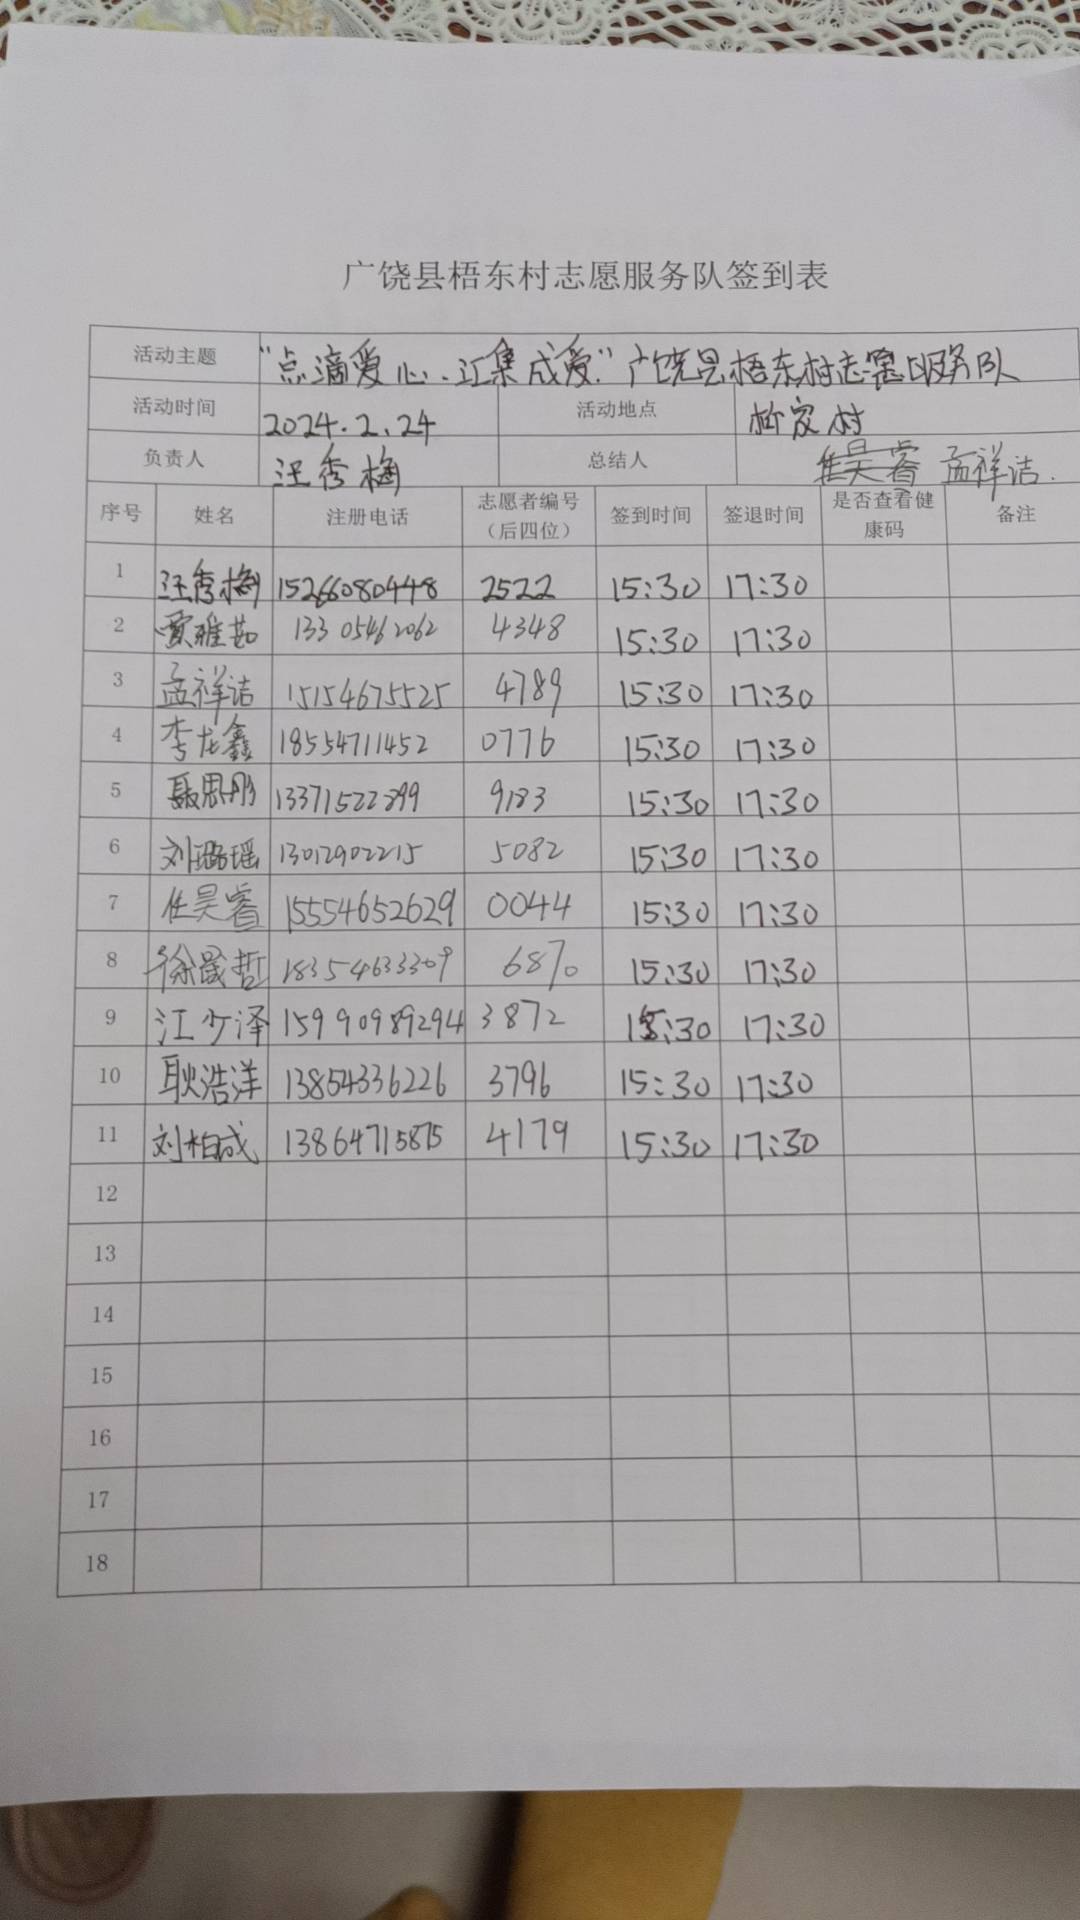 广饶县梧东村志愿服务队签到表
活动主题 “点滴爱心.汇集成爱.”广饶县梧东村志愿服务队
活动时间 2024.2.24 活动地点
负责人 汪秀梅 总结人 任昊睿 孟祥洁.
序号 姓名 注册电话 志愿者编号（后四位） 签到时间 签退时间 是否查看健康码 备注
1 汪秀梅 15266080448 2522 15:30 17:30
2 贾雅茹 13305462062 4348 15:30 17:30
3 孟祥洁 15154675525 4789 15:30 17:30
4 李龙鑫 18554711452 0776 15:30 17:30
5 聂思彤 13371522899 9183 15:30 17:30
6 刘璐瑶 13012902215 5082 15:30 17:30
7 任昊睿 15554652629 0044 15:30 17:30
8 徐晟哲 18354633309 6870 15:30 17:30
9 江少泽 15990989294 3872 15:30 17:30
10 耿浩洋 13854336226 3796 15:30 17:30
11 刘柏成 13864715875 4179 15:30 17:30
12
13
14
15
16
17
18